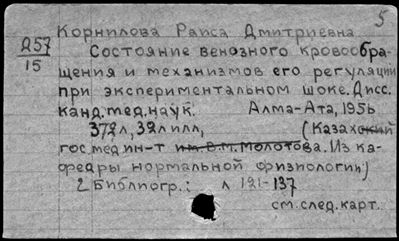 5
Корнилова Раиса Дмитриевна
Д57
15
Состояние венозного кровообра-
щения и механизмов его регуляции
при экспериментальном шоке. Дисс.
канд. мед. наук. Алма-Ата, 1956
372 л, 32л илл, (Казахский
гос мед ин-т им. В.М. Молотова. Из ка-
федры нормальной физиологии)
2 Библиогр.: л 121-137
см. след. карт.